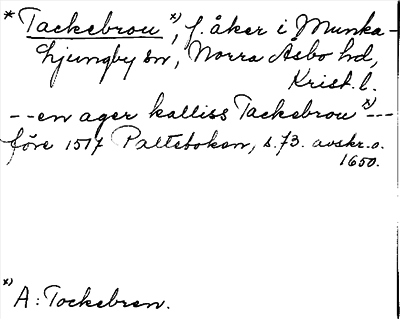 * Tackebrou x), f. åker i Munka-
Ljungby sn, Norra Åsbo hd,
Krist. l.
--en ager kalliss Tackebrou x)--
före 1517 Paltebokon, s. 73. avskr. o.
1650.
x) A: Tockebren.